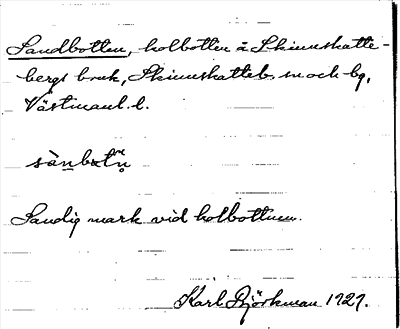 Sandbotten, kolbotten å Skinnskatte-
bergs bruk, Skinnskatteb. sn och bg,
Västmanl. l.
Sandig mark vid kolbottnen.
Karl Björkman 1927.